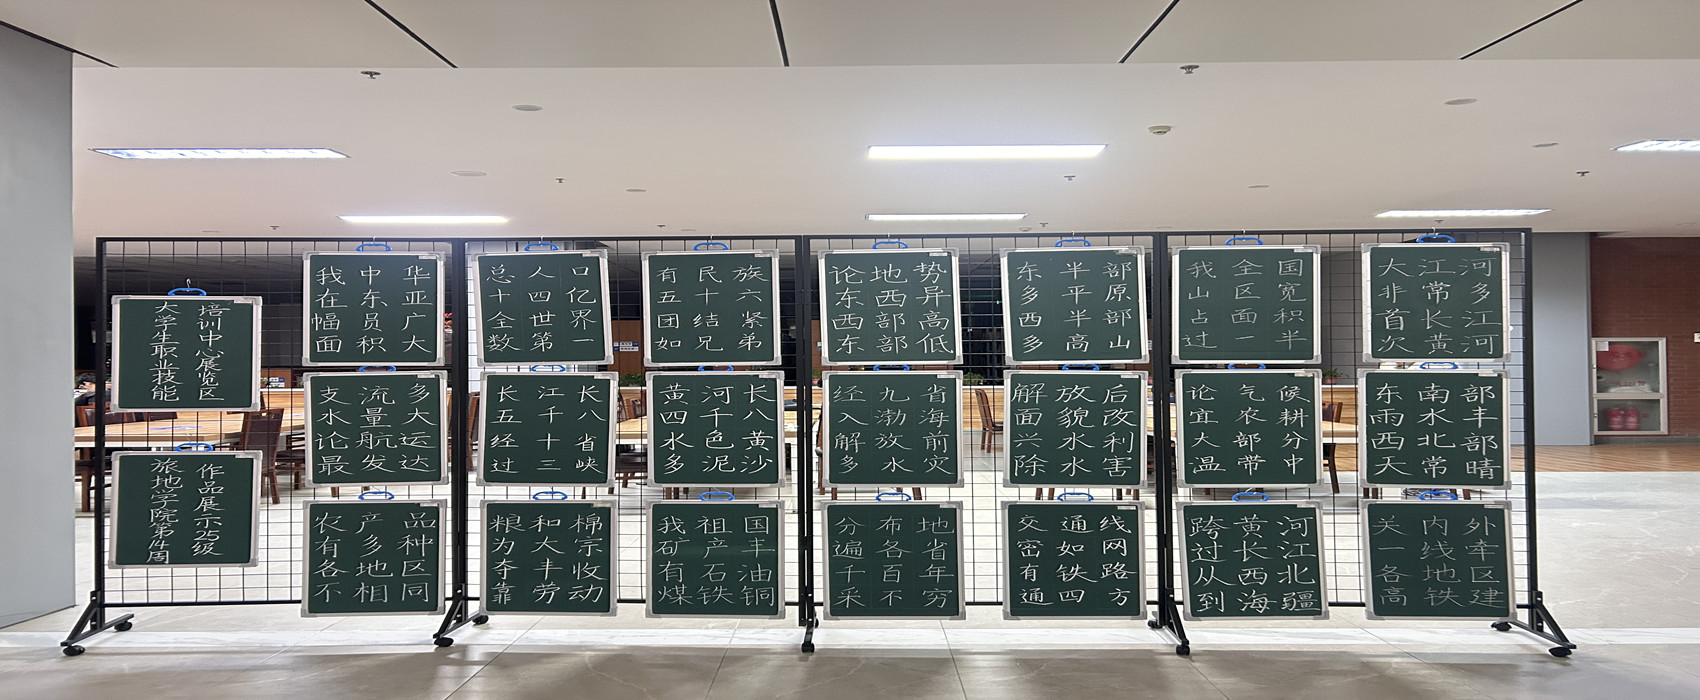 大学生职业技能
培训中心展览区
旅地学院第14周
作品展示25级
我中华
在东亚
幅员广
面积大
总人口
十四亿
全世界
数第一
有民族
五十六
团结紧
如兄弟
论地势
东西异
西部高
东部低
东半部
多平原
西半部
多高山
我全国
山区宽
占面积
过一半
大江河
非常多
首长江
次黄河
支流多
水量大
论航运
最发达
长江长
五千八
经十省
过三峡
黄河长
四千八
水色黄
多泥沙
经九省
入渤海
解放前
多水灾
解放后
面貌改
兴水利
除水害
论气候
宜农耕
大部分
温带中
东南部
雨水丰
西北部
天常晴
农产品
有多种
各地区
不相同
粮和棉
为大宗
夺丰收
靠劳动
我祖国
矿产丰
有石油
煤铁铜
分布地
遍各省
千百年
采不穷
交通线
密如网
有铁路
通四方
跨黄河
过长江
从西北
到海疆
关内外
一线牵
各地区
高铁建